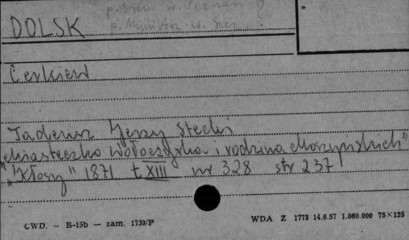 DOLSK
Cerkiew
Tadeusz Jerzy Stecki
„Miasteczko Wołoczyska i rodzina Moszyńskich"
"Kłosy" 1871 t. XIII nr 328 str 237
CWD. - B-15b - zam. 1753/P
WDA Z 1773 14.6.57 1.000.000 75×125